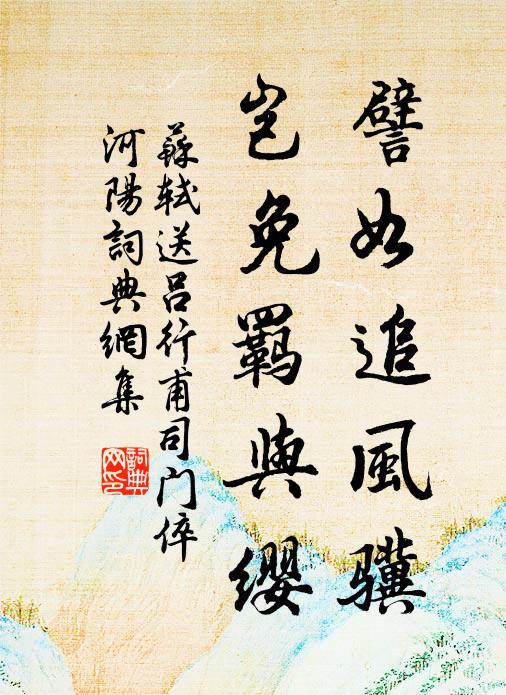 譬如追風驥
豈免羈與纓
蘇軾送呂行甫司門倅
河陽詞典網集
詞典
网印